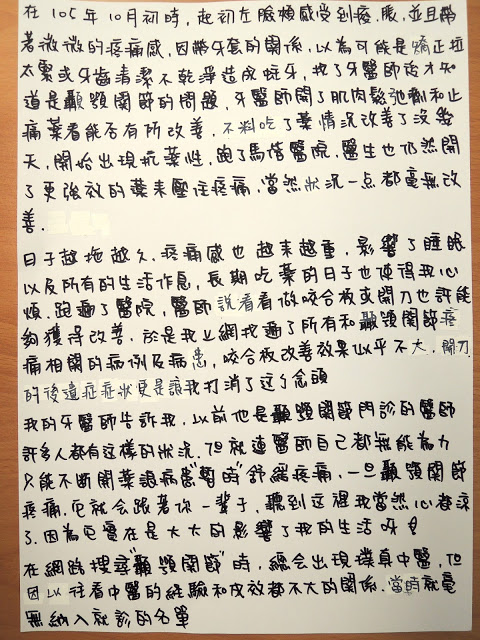 在105年10月初時，起初左臉頰感受到痠.脹，並且帶
著微微的疼痛感，因帶牙套的關係，以為可能是矯正拉
太緊或牙齒清潔不乾淨造成蛀牙，找了牙醫師後才知
道是顳顎關節的問題，牙醫師開了肌肉鬆弛劑和止
痛藥看能否有所改善，不料吃了藥情況改善了沒幾
天，開始出現抗藥性，跑了馬偕醫院，醫生也仍然開
了更強效的藥來壓住疼痛，當然狀況一点都毫無改
善.
日子越拖越久，疼痛感也越來越重，影響了睡眠
以及所有的生活作息，長期吃藥的日子也使得我心
煩.跑遍了醫院，醫師說看看做咬合板或開刀也許能
夠獲得改善，於是我上網找遍了所有和顳顎關節疼
痛相關的病例及病患，咬合板改善效果似乎不大，開刀
的後遺症症狀更是讓我打消了这了念頭
我的牙醫師告訴我，以前他是顳顎關節門診的醫師
許多人都有这樣的狀況，但就連醫師自己都無能為力
只能不斷開藥讓病患"暫時"舒緩疼痛，一旦顳顎關節
疼痛，它就会跟著你一輩子，聽到这裡我當然心都涼
了.因為它實在是大大的影響了我的生活呀！
在網路搜尋"顳顎關節"時，總会出現璞真中醫，但
因以往看中醫的經驗和成效都不大的關係.當時就毫
無納入就診的名單